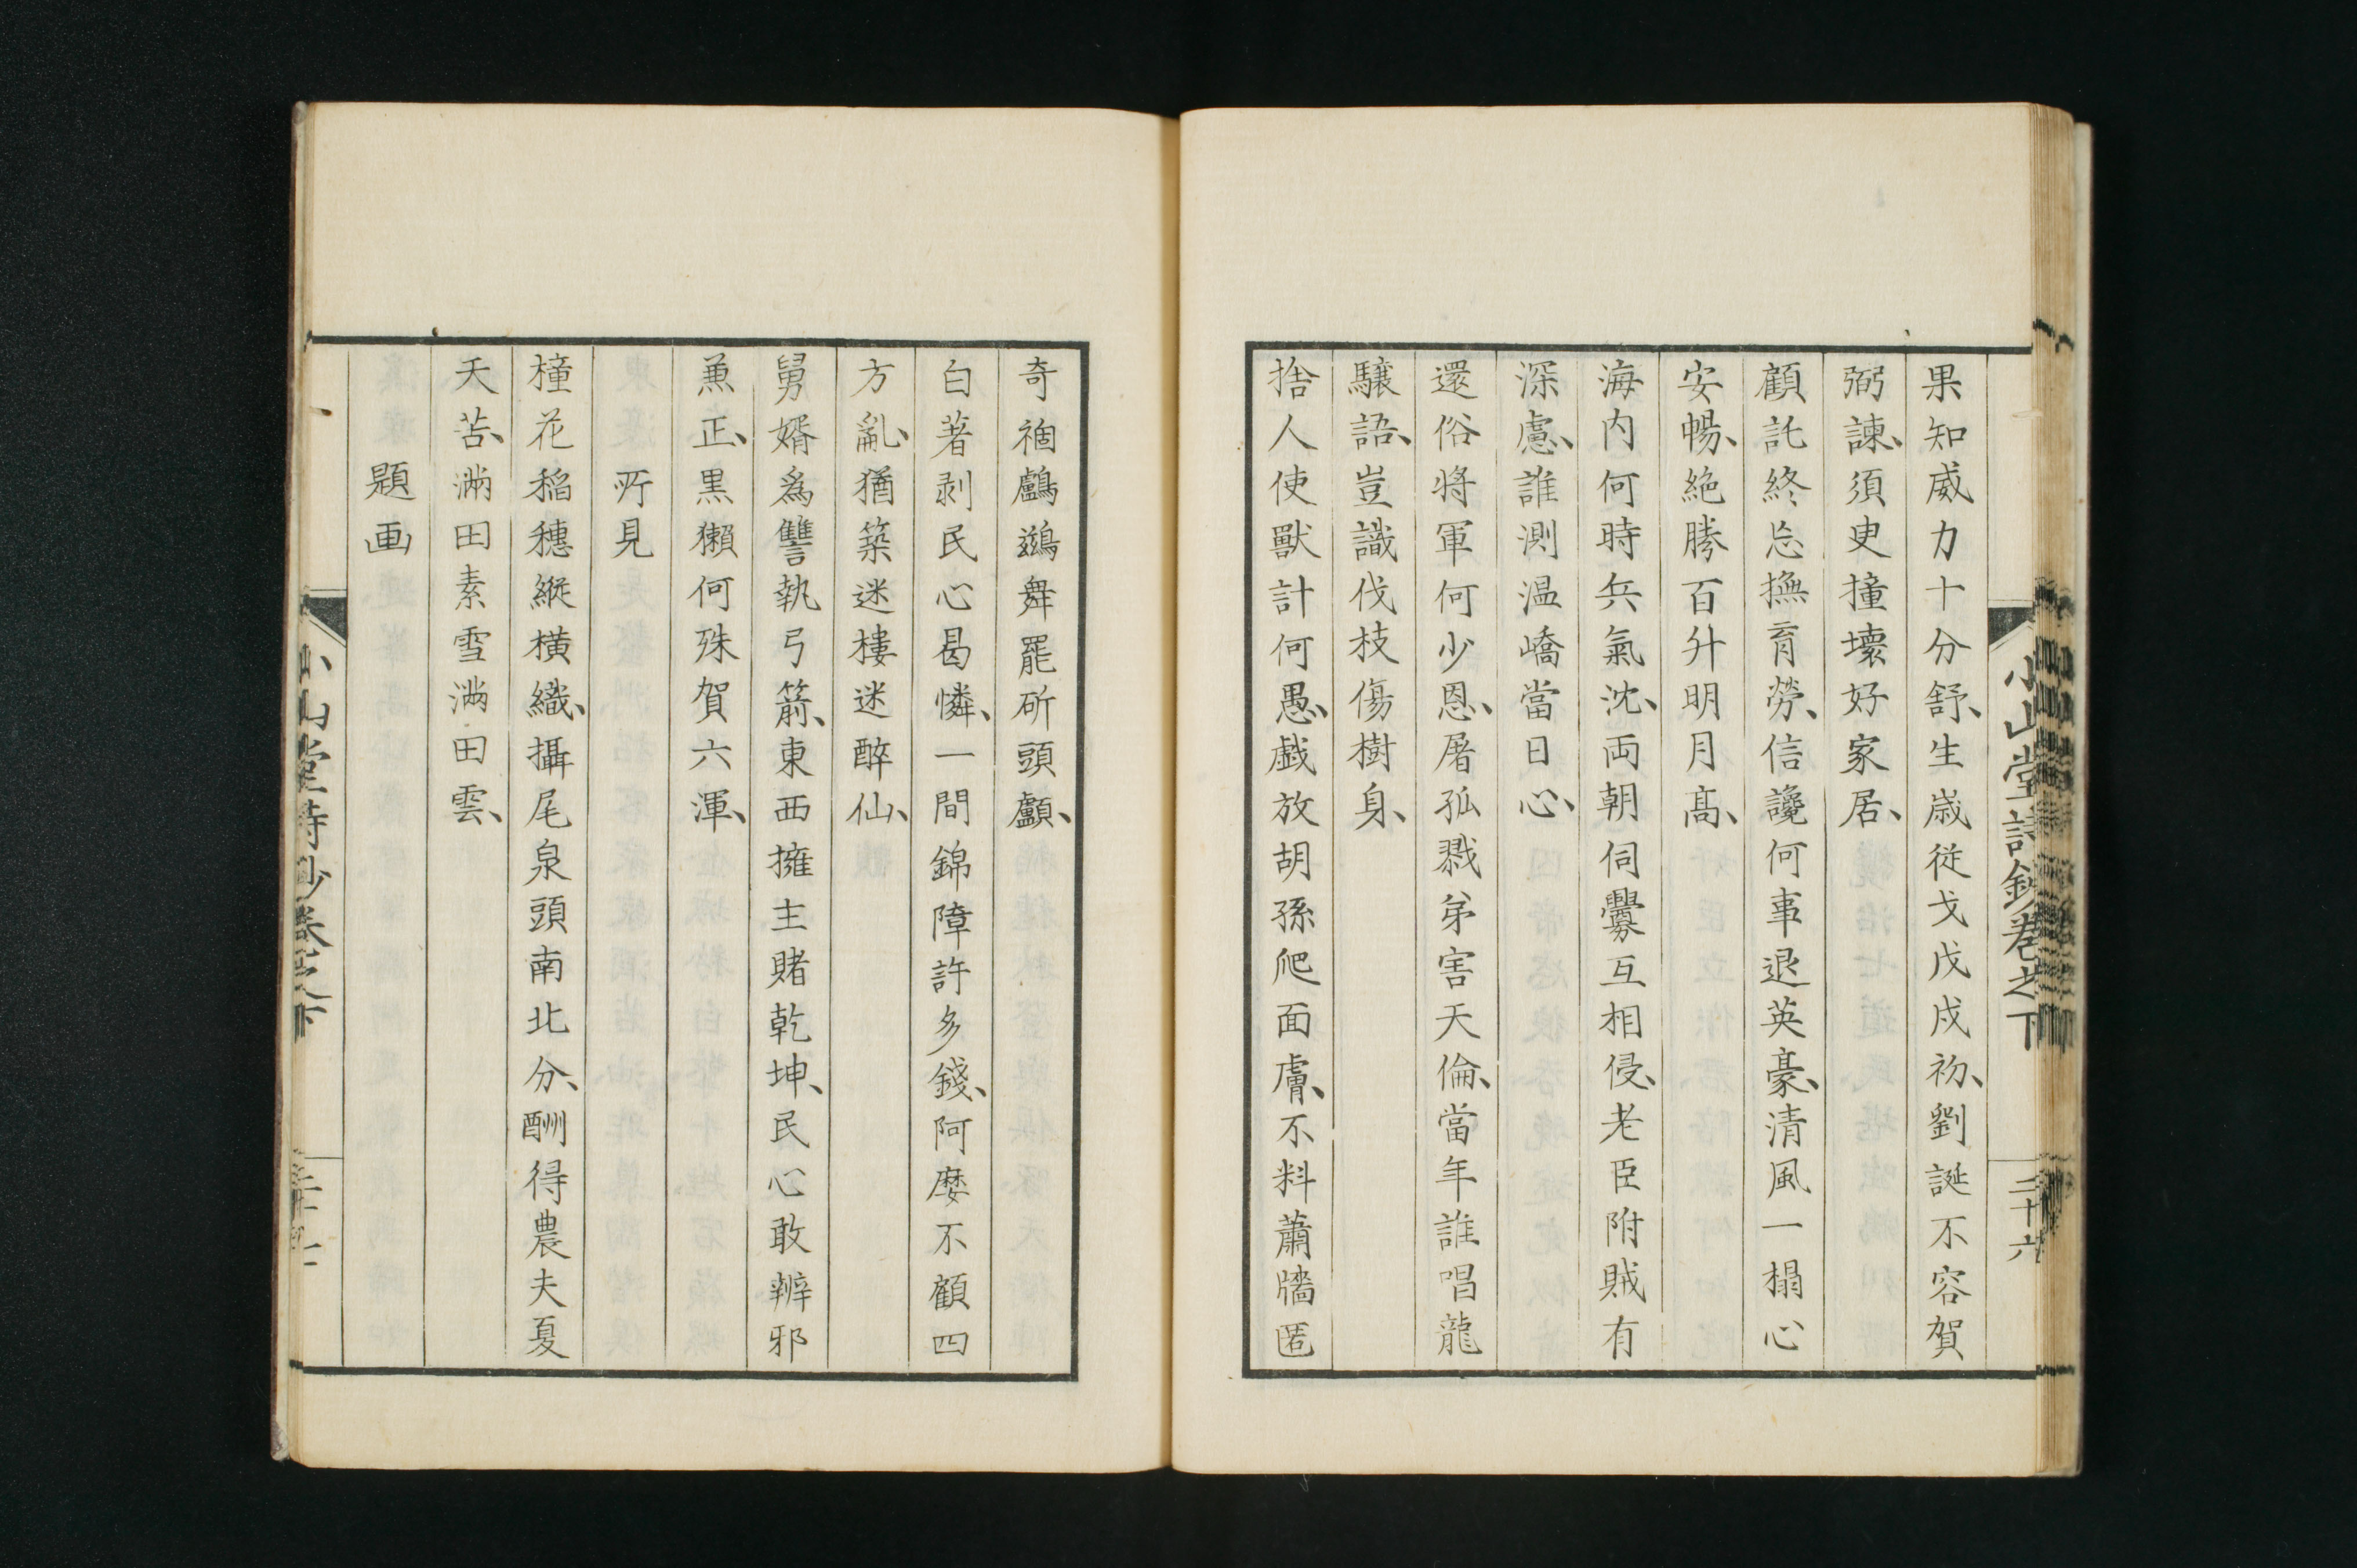 果知威力十分舒、生歳從戈戊戌初、劉誕不容賀
弼諫、須臾撞壞好家居、
顧託終忘撫育勞、信讒何事退英豪、清風一榻心
安暢、絶勝百升明月高、
海内何時兵氣沈、両朝伺釁互相侵、老臣附賊有
深慮、誰測温嶠當日心、
還俗將軍何少恩、屠孤戮弟害天倫、當年誰唱龍
驤語、豈識伐枝傷樹身、
捨人使獸計何愚、戯放胡孫爬面膚、不料蕭牆匿
小山堂詩鈔巻之下
二十六
奇禍鸕鷀舞罷斫頭顱、
白著剥民心曷憐、一間錦障許多錢、阿麼不顧四
方亂、猶築迷樓迷醉仙、
舅婿爲讐執弓箭、東西擁主賭乾坤、民心敢辨邪
兼正、黒獺何殊賀六渾、
所見
橦花稲穂縦横織、攝尾泉頭南北分、酬得農夫夏
天苦、満田素雪満田雲、
題画
小山堂詩鈔巻之下